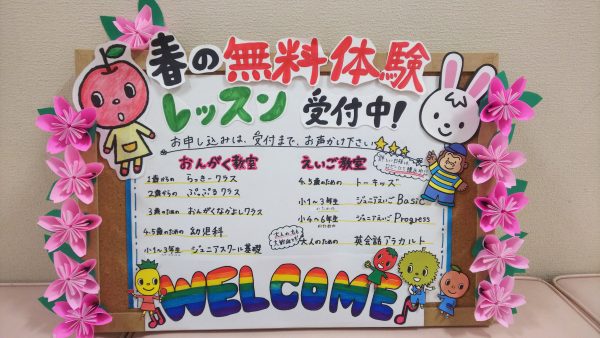 春の無料体験
レッスン 受付中!
お申し込みは、受付まで、お声がけ下さい
おんがく教室
1歳からの らっきークラス
2歳からの ぷっぷるクラス
3歳のための おんがくなかよしクラス
4.5歳のための 幼児科
小1~3年生 ジュニアスクール基礎
えいご教室
4.5歳のための トーキッズ
小1~3年生 ジュニアえいご Basic
小4~6年生 ジュニアえいご Progress
大人のための 英会話アラカルト
WELCOME